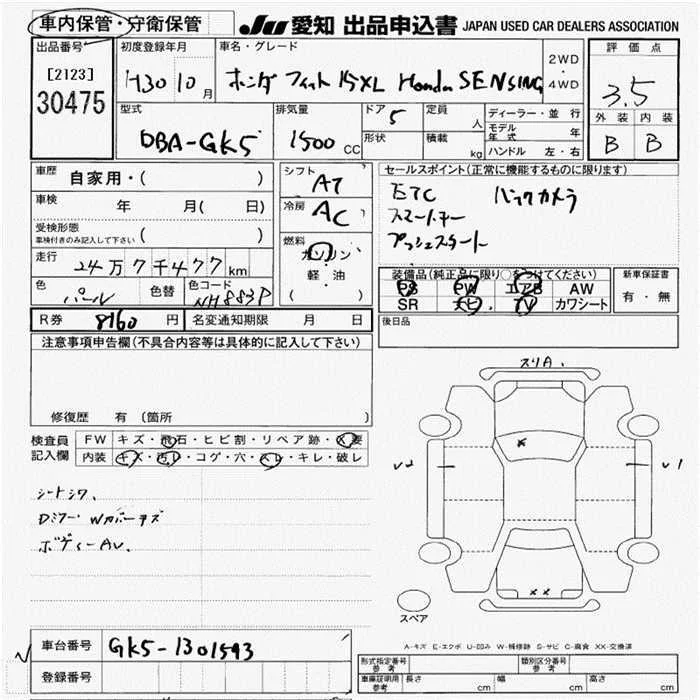 車内保管・守衛保管 JU 愛知 出品申込書 JAPAN USED CAR DEALERS ASSOCIATION
出品番号 初度登録年月 車名・グレード 2WD・4WD 評価点
[2123] H30 10月 ホンダ フィット 15XL Honda SENSING 3.5
30475 外装 内装
B B
型式 排気量 ドア 定員 ディーラー・並行
DBA-GK5 1500 CC 5 人 モデル年式 年
形状 積載 kg ハンドル 左・右
車歴 自家用・( )
シフト AT
セールスポイント(正常に機能するものに限ります)
車検 年 月( 日)
冷房 AC
ETC バックカメラ
スマートキー
プッシュスタート
受検形態 車検付きのみ記入して下さい ( )
燃料 ガソリン 軽・油 ( )
走行 24万7千477km
装備品(純正品に限り○をつけてください) 新車保証書
PS PW エアB AW 有・無
SR ナビ TV カワシート
色 パール 色替 色コード NH883P
R券 8160円 名変通知期限 月 日
後日品
注意事項申告欄(不具合内容等は具体的に記入して下さい)
修復歴 有(箇所
検査員記入欄 FW キズ・飛石・ヒビ割・リペア跡・X要
内装 キズ・汚レ・コゲ・穴・スレ・キレ・破レ
シートシワ、
Dミラー Wカバーキズ
ボディーAU.
スリA.
U2 U1
×
××
スペア
A-キズ E-エクボ U-凹み W-補修跡 S-サビ C-腐食 XX-交換済
車台番号 GK5-1301593
登録番号
型式指定番号 参考 類別区分番号 参考
車庫証明用 参考 長さ cm 幅 cm 高さ cm